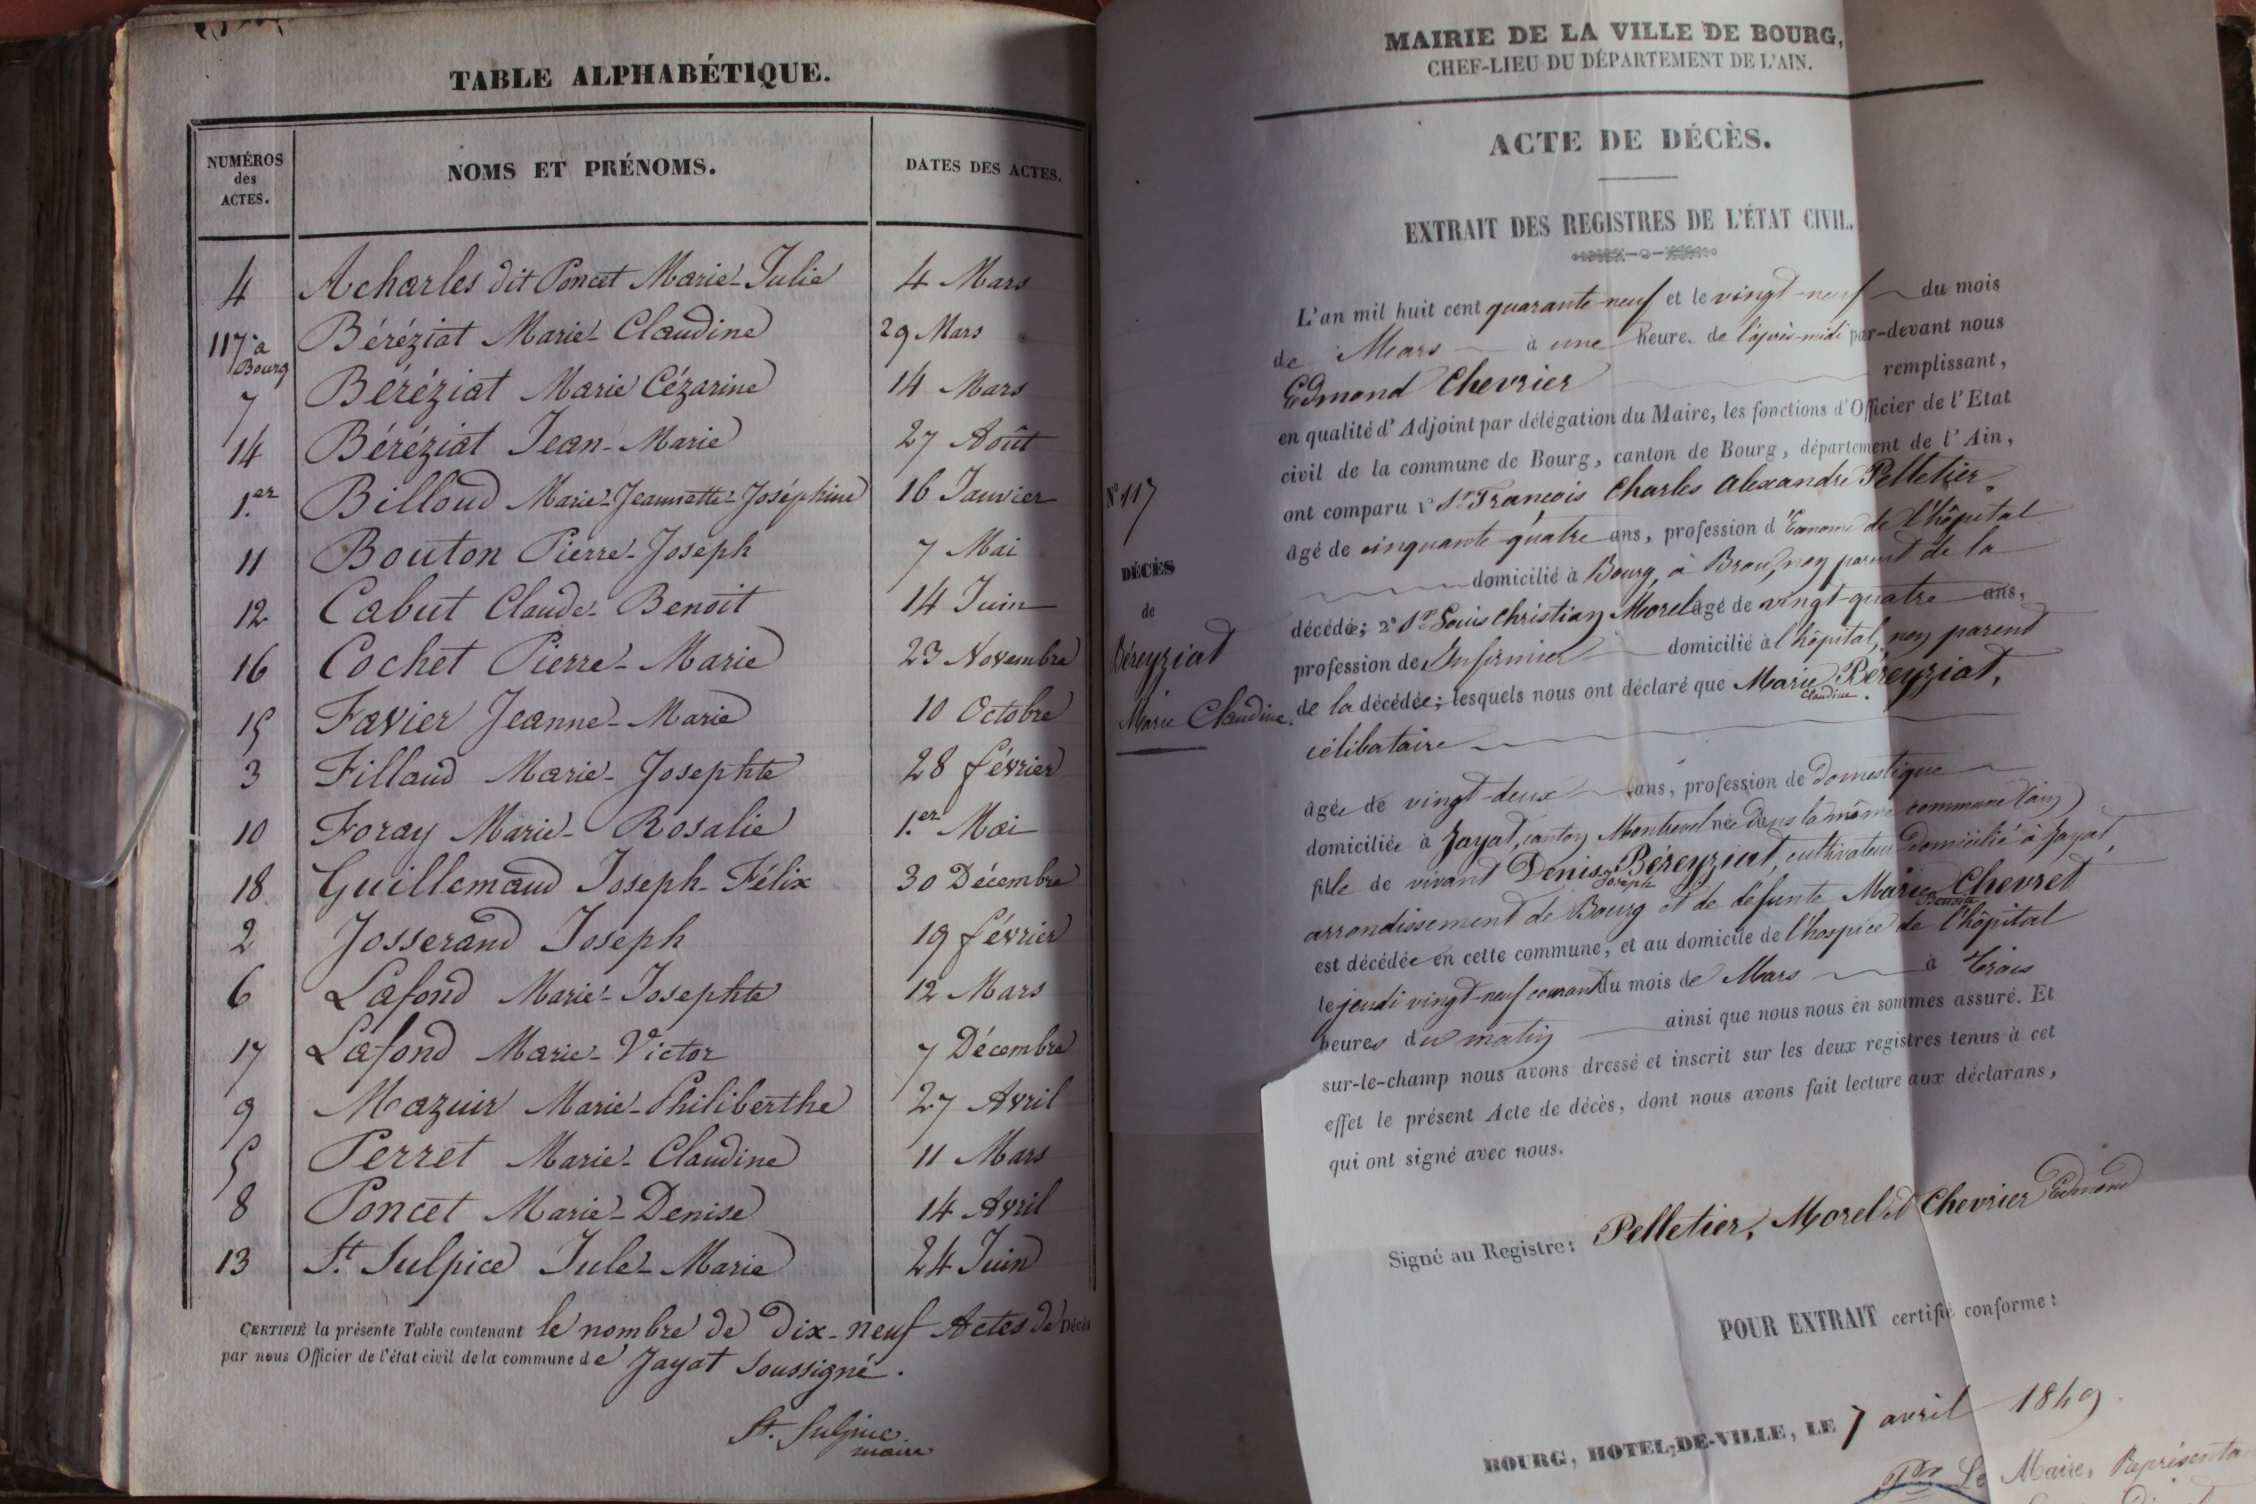 TABLE ALPHABÉTIQUE.
NUMÉROS
des
ACTES.
NOMS ET PRÉNOMS.
DATES DES ACTES.
4 Acharles dit Poncet Marie-Julie 4 Mars
117 à Bourg Béréziat Marie-Claudine 29 Mars
7 Béréziat Marie Cézarine 14 Mars
14 Béréziat Jean-Marie 27 Août
1.er Billoud Marie-Jeannette-Joséphine 16 Janvier
11 Bouton Pierre-Joseph 7 Mai
12 Cabut Claude-Benoit 14 Juin
16 Cochet Pierre-Marie 23 Novembre
15 Favier Jeanne-Marie 10 Octobre
3 Fillaud Marie-Josephte 28 février
10 Foray Marie-Rosalie 1.er Mai
18 Guillemaud Joseph-Félix 30 Décembre
2 Josserand Joseph 19 février
6 Lafond Marie-Josephte 12 Mars
17 Lafond Marie-Victor 7 Décembre
9 Mazuir Marie-Philiberthe 27 Avril
5 Perret Marie-Claudine 11 Mars
8 Poncet Marie-Denise 14 Avril
13 St. Sulpice Jule-Marie 24 Juin
CERTIFIÉ la présente Table contenant le nombre de Dix-neuf Actes de Décès
par nous Officier de l'état civil de la commune de Jayat soussigné.
St. Sulpice
maire
MAIRIE DE LA VILLE DE BOURG,
CHEF-LIEU DU DÉPARTEMENT DE L'AIN.
ACTE DE DÉCÈS.
EXTRAIT DES REGISTRES DE L'ÉTAT CIVIL.
N° 117
DÉCÈS
de
Béreyziat
Marie Claudine.
L'an mil huit cent quarante-neuf et le vingt-neuf du mois
de Mars à une heure de l'après-midi par-devant nous
Edmond Chevrier remplissant,
en qualité d'Adjoint par délégation du Maire, les fonctions d'Officier de l'Etat
civil de la commune de Bourg, canton de Bourg, département de l'Ain,
ont comparu 1° Sr. François Charles Alexandre Pelletier
âgé de cinquante-quatre ans, profession d'Econome de l'hôpital
domicilié à Bourg, à Brou, non parent de la
décédée; 2° Sr Louis Christian Morel âgé de vingt-quatre ans,
profession de Infirmier domicilié à l'hôpital, non parent
de la décédée; lesquels nous ont déclaré que Marie Béreyziat,
Claudine.
célibataire
âgée de vingt-deux ans, profession de domestique
domiciliée à Jayat, canton Montrevel née dans la même commune (ain)
fille de vivant Denis Béreyziat, cultivateur domicilié à Jayat,
Joseph
arrondissement de Bourg et de défunte Marie Chevret
Benoite
est décédée en cette commune, et au domicile de l'hospice de l'hôpital
le jeudi vingt-neuf courant du mois de Mars à trois
heures du matin ainsi que nous nous en sommes assuré. Et
sur-le-champ nous avons dressé et inscrit sur les deux registres tenus à cet
effet le présent Acte de décès, dont nous avons fait lecture aux déclarans,
qui ont signé avec nous.
Signé au Registre: Pelletier, Morel et Chevrier Edmond
POUR EXTRAIT certifié conforme:
BOURG, HOTEL-DE-VILLE, LE 7 avril 1849.
Pr Le Maire, Représenta